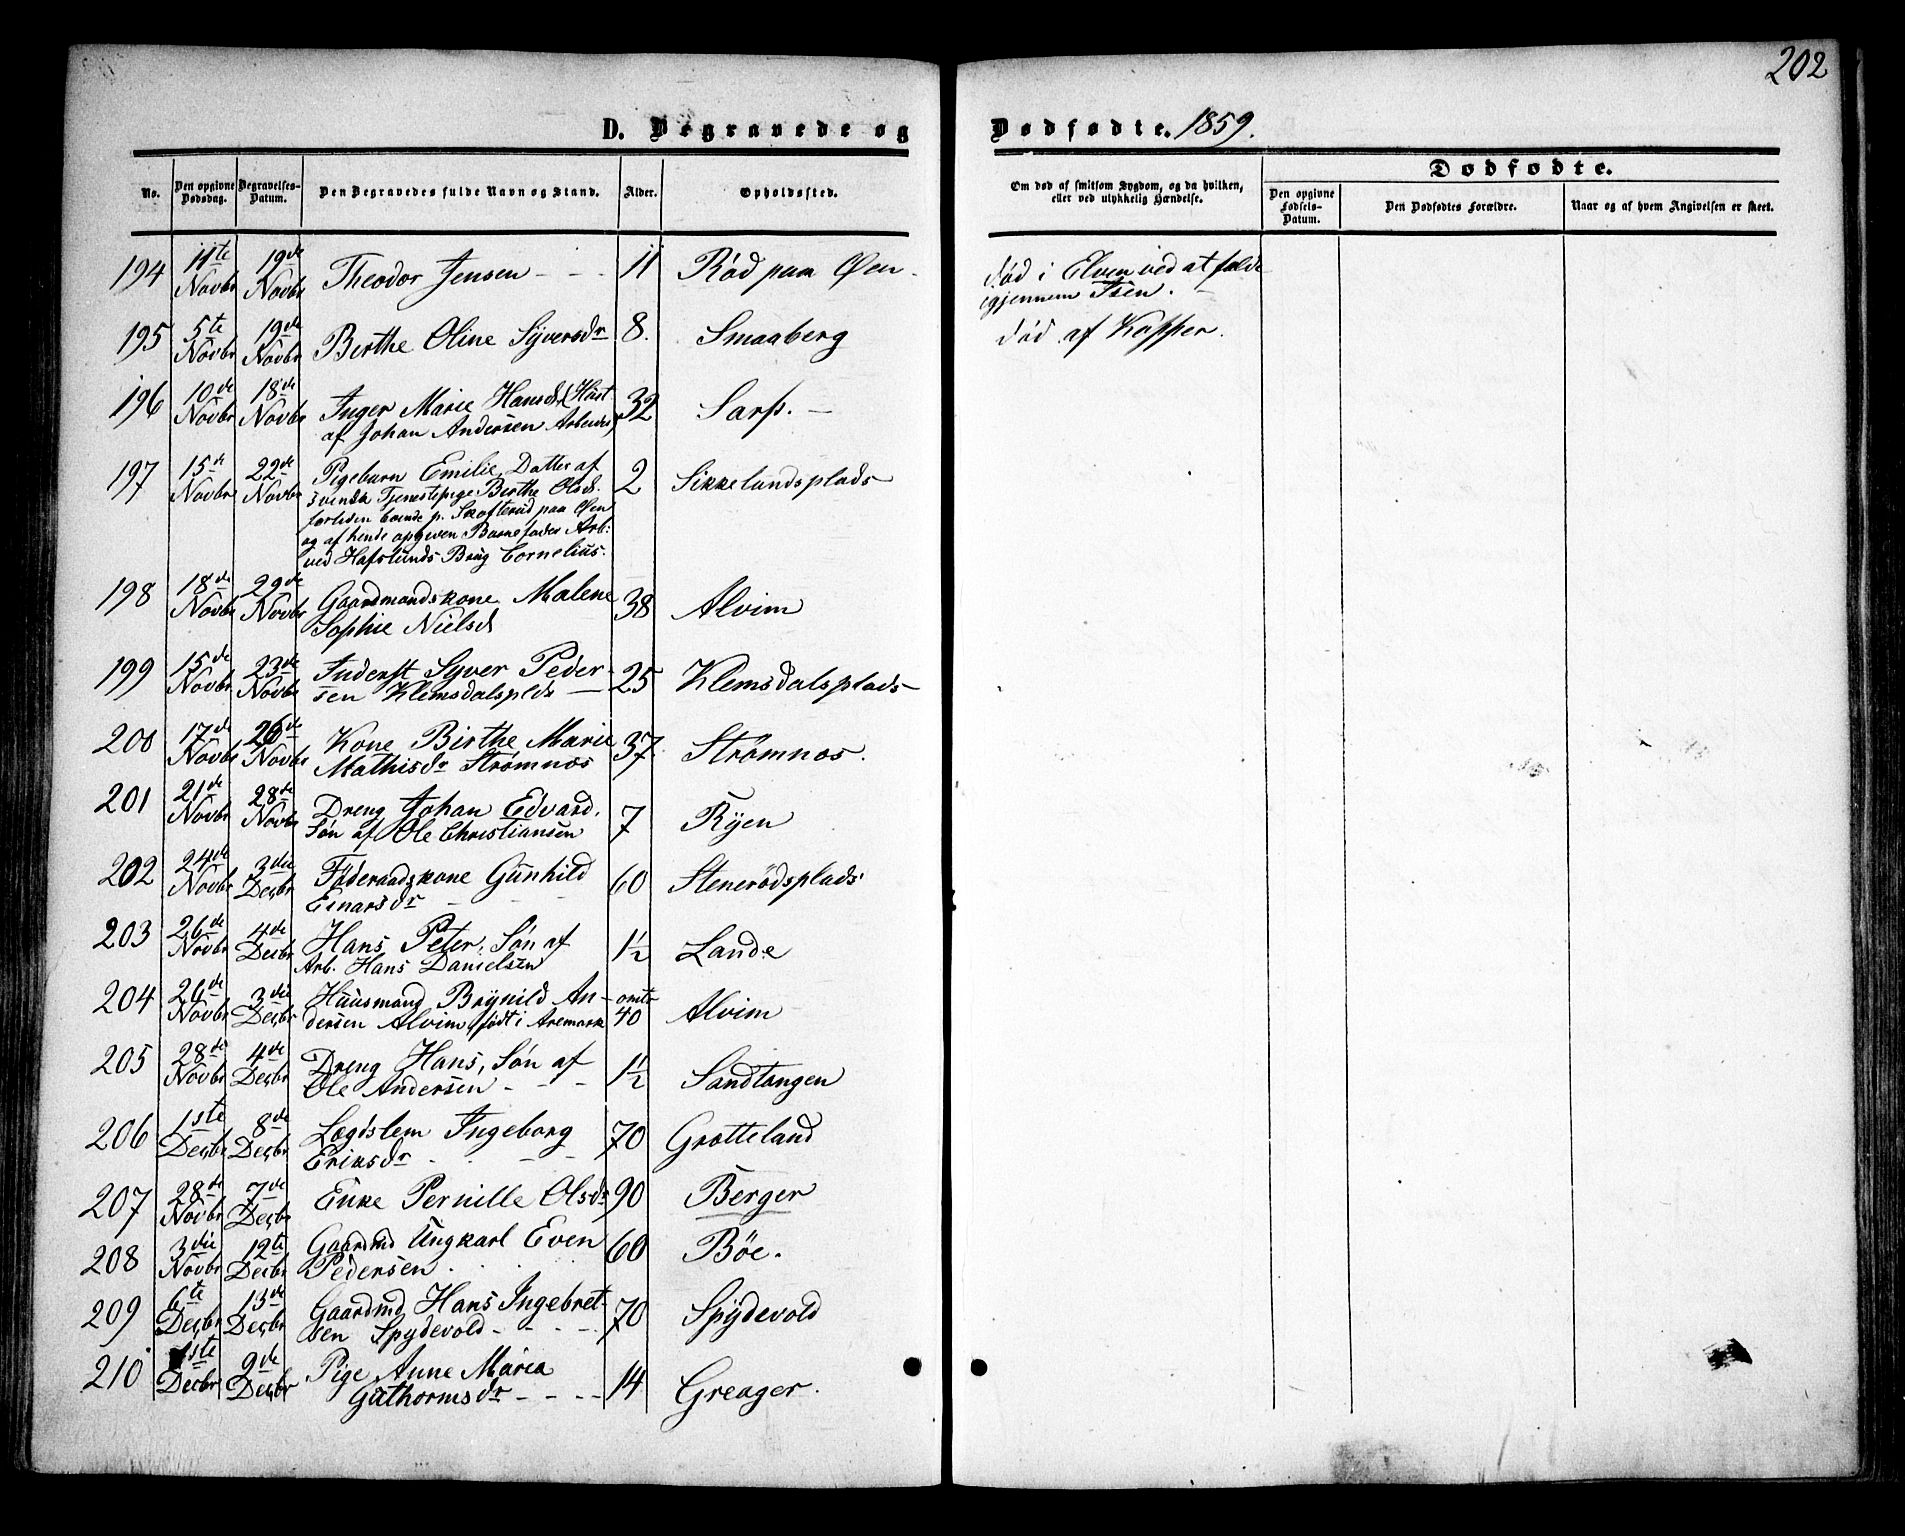 202
D. Begravede og Dødfødte. 1859.
No. Den opgivne Dødsdag. Begravelses-Datum. Den Begravedes fulde Navn og Stand. Alder. Opholdssted. Om død af smitsom Sygdom, og da hvilken, eller ved ulykkelig Hændelse. Dødfødte.
Den opgivne Fødsels-Datum. Den Dødfødtes Forældre. Naar og af hvem Angivelsen er skeet.
194 11te Novbr 19de Novbr Theodor Jensen - - - 11 Rød paa Øen - død i Elven ved at falde
igjennem Isen. -
195 5te Novbr 19de Novbr Birthe Oline Syversdr 8. Smaaberg død af Kopper.
196 10de Novbr 18de Novbr Inger Marie Hansd. 32 Sarp. -
af Johan Andersen
197 15de Novbr 22de Novbr Pigebarn Emilie, Datter af 2 Sikkelandsplads
svensk Tjenestepige Birthe Olsd.
boende p. Skofterød paa Øen
og af hende opgiven Barnefader Arb:
ved Hafslunds Brug Cornelius.
198 18de Novbr 29de Novbr Gaardmandskone Malene 38 Alvim
Sophie Nielsd
199 15de Novbr 23de Novbr Inderst Syver Peder- 25 Klemsdalsplads -
sen Klemsdalsplds -
200 17de Novbr 26de Novbr Kone Birthe Marie 37. Strømnæs.
Mathisdr Strømnæs
201 21de Novbr 28de Novbr Dreng Johan Edvard. 7 Ryen
Søn af Ole Christiansen
202 24de Novbr 3die Decbr Føderaadskone Gunhild 60 Stenerødsplads
Einarsdr - - -
203 26de Novbr 4de Decbr Hans Peter, Søn af 1½ Lande
Arb. Hans Danielsen
204 26de Novbr 3die Decbr Huusmand Brynild An- omtr 40 Alvim
dersen Alvim, født i Aremark
205 28de Novbr 4de Decbr Dreng Hans, Søn af 1½ Sandtangen
Ole Andersen - - -
206 1ste Decbr 8de Decbr Lægdslem Ingeborg 70 Grøtteland
Eriksdr . . - -
207 28de Novbr 7de Decbr Enke Pernille Olsdr 90 Berger
208 3die Novbr 12te Decbr Gaardmd Ungkarl Even 60 Bøe.
Pedersen . . . .
209 6te Decbr 13de Decbr Gaardmd Hans Ingebret- 70 Spydevold
sen Spydevold - - - -
210 1ste Decbr 9de Decbr Pige Anne Maria 14 Greager.
Guthormsdr - - - -